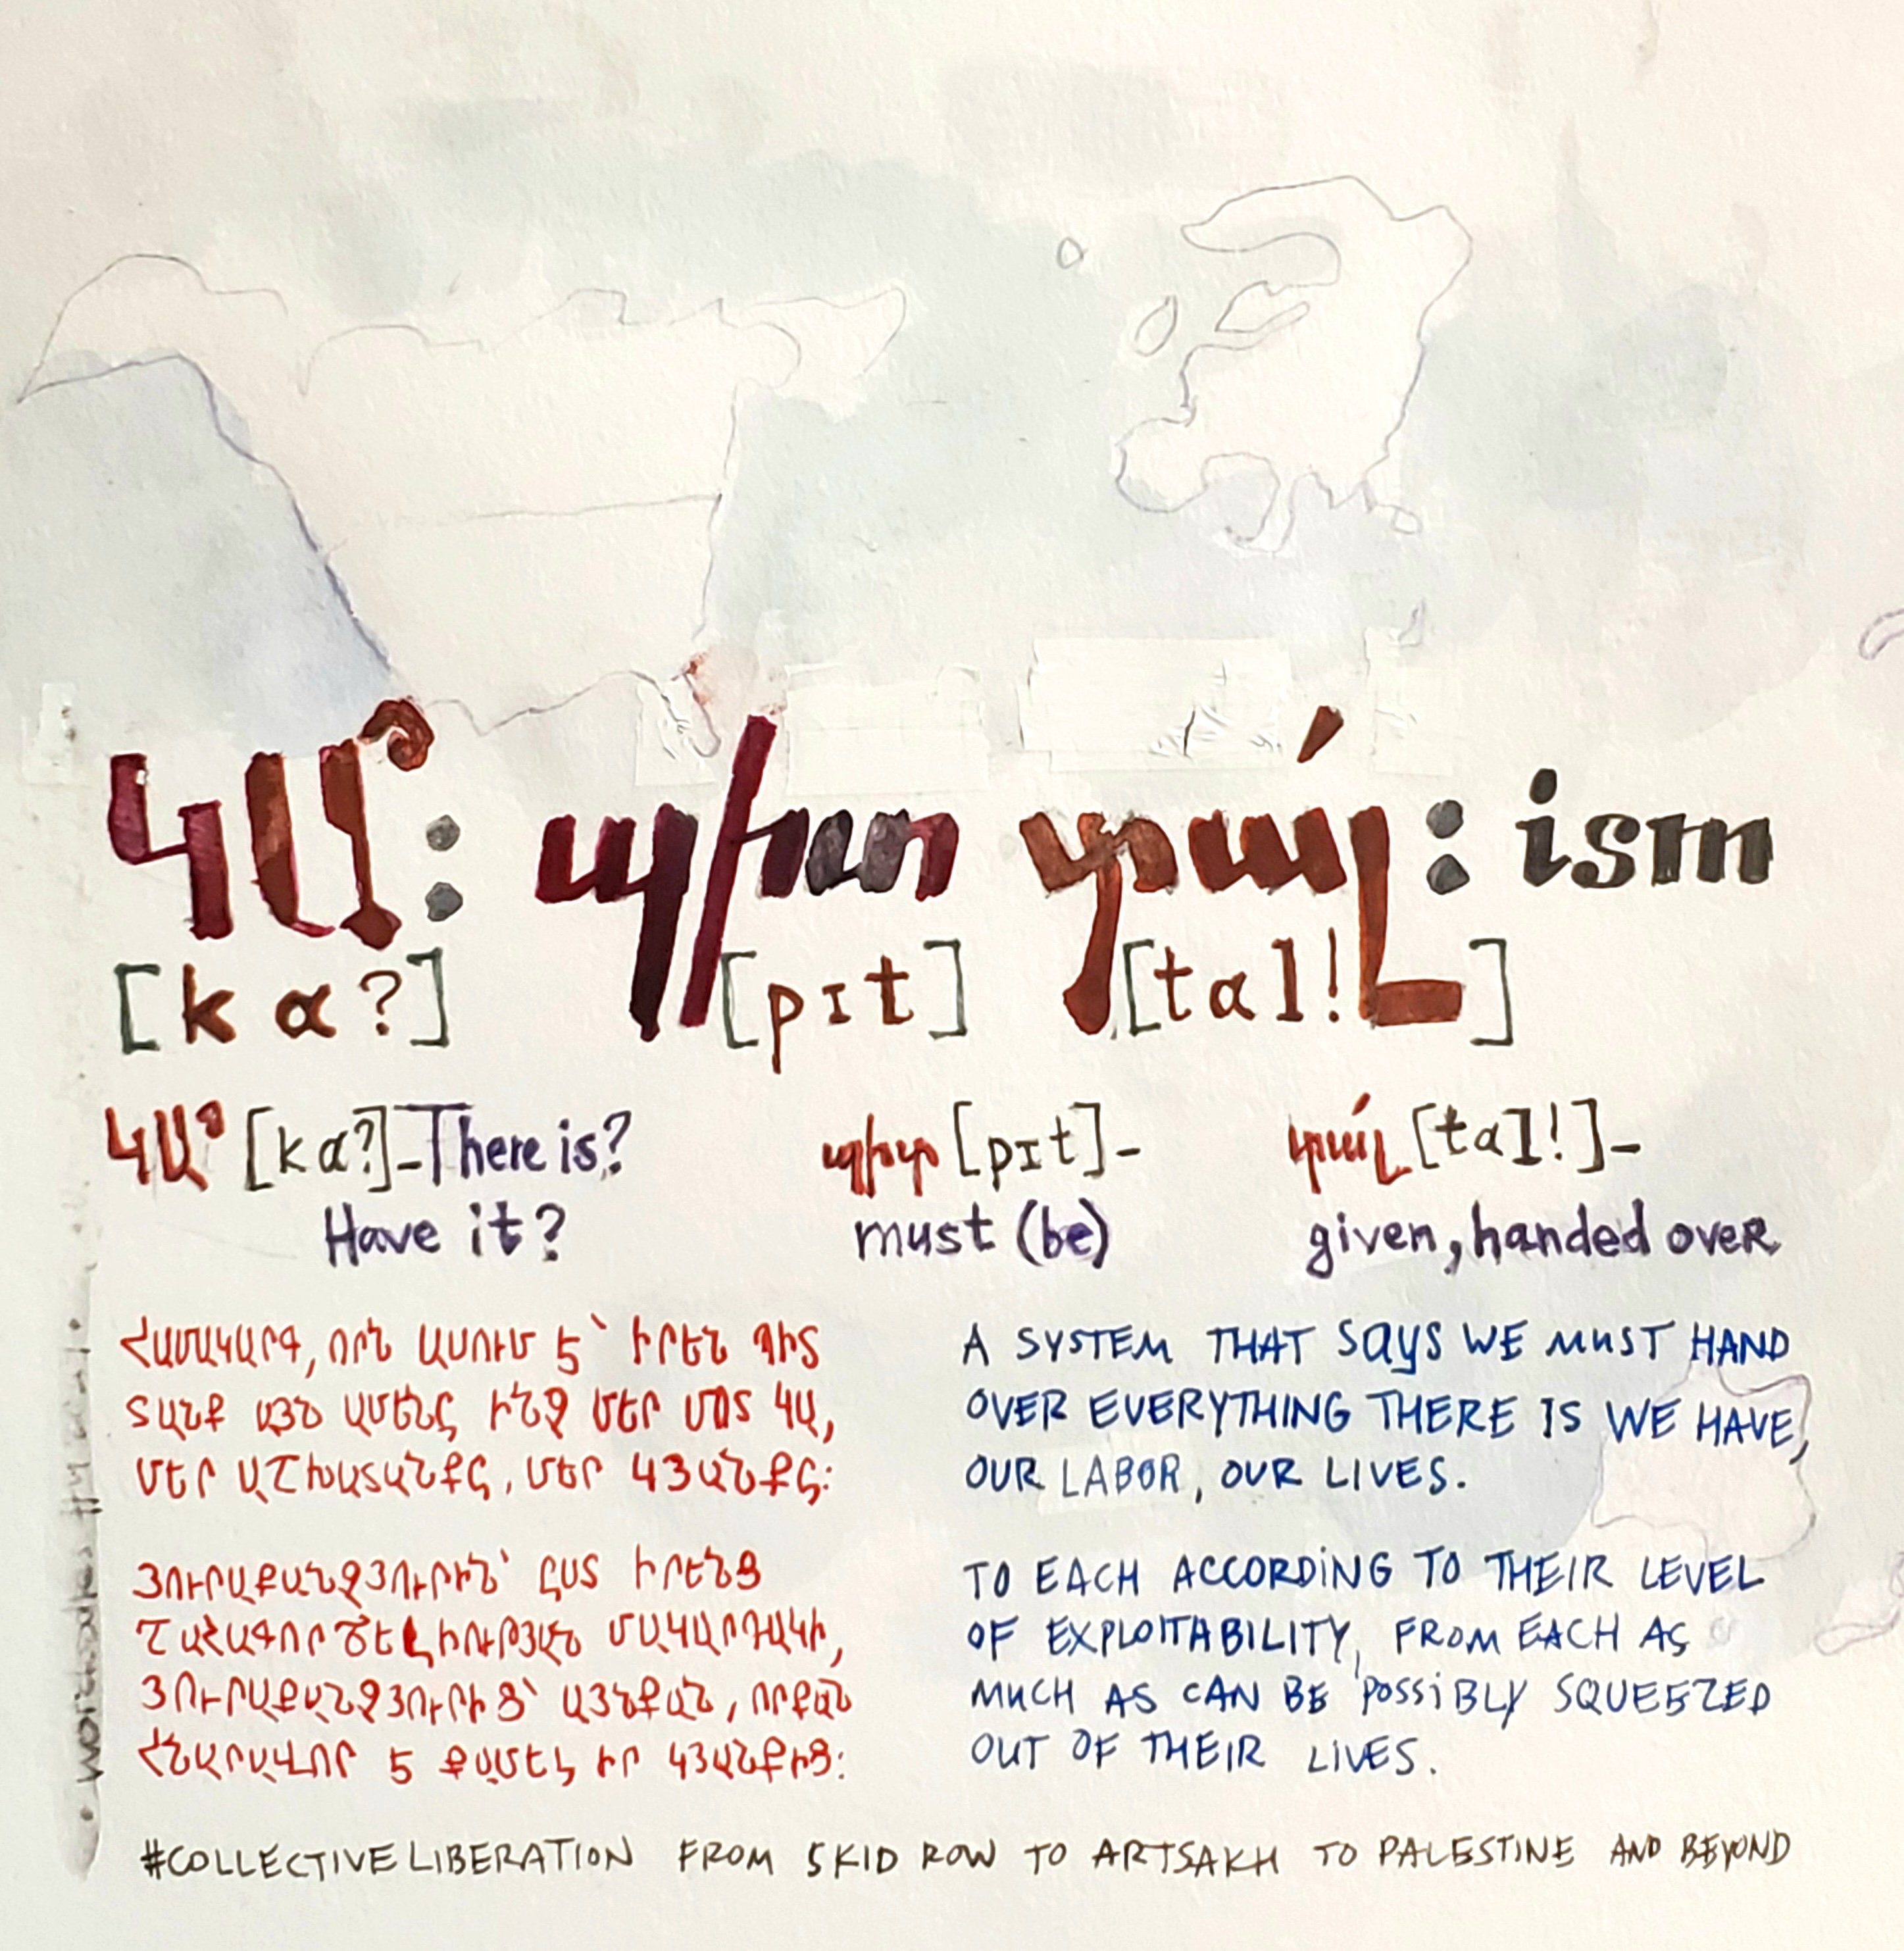 Կա՞: պիտ տա՛լ: ism
[kɑ?] [pɪt] [tɑl!]
Կա՞ [kɑ?]-There is? պիտ [pɪt]- տա՛լ [tɑl!]-
Have it? must (be) given, handed over
ՀԱՄԱԿԱՐԳ, ՈՐՆ ԱՍՈՒՄ Է՝ ԻՐԵՆ ՊԻՏ
ՏԱՆՔ ԱՅՆ ԱՄԵՆԸ ԻՆՉ ՄԵՐ ՄՈՏ ԿԱ,
ՄԵՐ ԱՇԽԱՏԱՆՔԸ, ՄԵՐ ԿՅԱՆՔԸ:
ՅՈՒՐԱՔԱՆՉՅՈՒՐԻՆ՝ ԸՍՏ ԻՐԵՆՑ
ՇԱՀԱԳՈՐԾԵԼԻՈՒԹՅԱՆ ՄԱԿԱՐԴԱԿԻ,
ՅՈՒՐԱՔԱՆՉՅՈՒՐԻՑ՝ ԱՅՆՔԱՆ, ՈՐՔԱՆ
ՀՆԱՐԱՎՈՐ Է ՔԱՄԵԼ ԻՐ ԿՅԱՆՔԻՑ:
A SYSTEM THAT SAYS WE MUST HAND
OVER EVERYTHING THERE IS WE HAVE,
OUR LABOR, OUR LIVES.
TO EACH ACCORDING TO THEIR LEVEL
OF EXPLOITABILITY, FROM EACH AS
MUCH AS CAN BE POSSIBLY SQUEEZED
OUT OF THEIR LIVES.
#COLLECTIVELIBERATION FROM SKID ROW TO ARTSAKH TO PALESTINE AND BEYOND